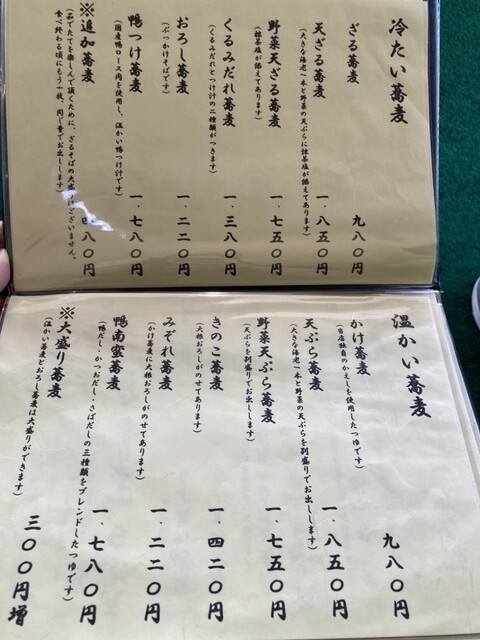 冷たい蕎麦
ざる蕎麦 九八〇円
天ざる蕎麦 一、八五〇円
(大きな海老一本と野菜の天ぷらに抹茶塩が添えてあります)
野菜天ざる蕎麦 一、七五〇円
(抹茶塩が添えてあります)
くるみだれ蕎麦 一、三八〇円
(くるみだれとつけ汁の二種類がつきます)
おろし蕎麦 一、二二〇円
(ぶっかけそばです)
鴨つけ蕎麦 一、七八〇円
(国産鴨ロース肉を使用し、温かい鴨つけ汁です)
※追加蕎麦 八〇円
(茹でたてを楽しんで頂くために、ざるそばの大盛りはございません。
食べ終わる頃にもう一枚、同じ量でお出しします)
温かい蕎麦
かけ蕎麦 九八〇円
(当店独自のかえしを使用したつゆです)
天ぷら蕎麦 一、八五〇円
(大きな海老一本と野菜の天ぷらを別盛りでお出しします)
野菜天ぷら蕎麦 一、七五〇円
(天ぷらを別盛りでお出しします)
きのこ蕎麦 一、四二〇円
(大根おろしがのせてあります)
みぞれ蕎麦 一、二二〇円
(かけ蕎麦に大根おろしがのせてあります)
鴨南蛮蕎麦 一、七八〇円
(鴨だし・かつおだし・さばだしの三種類をブレンドしたつゆです)
※大盛り蕎麦 三〇〇円増
(温かい蕎麦とおろし蕎麦は大盛りができます)